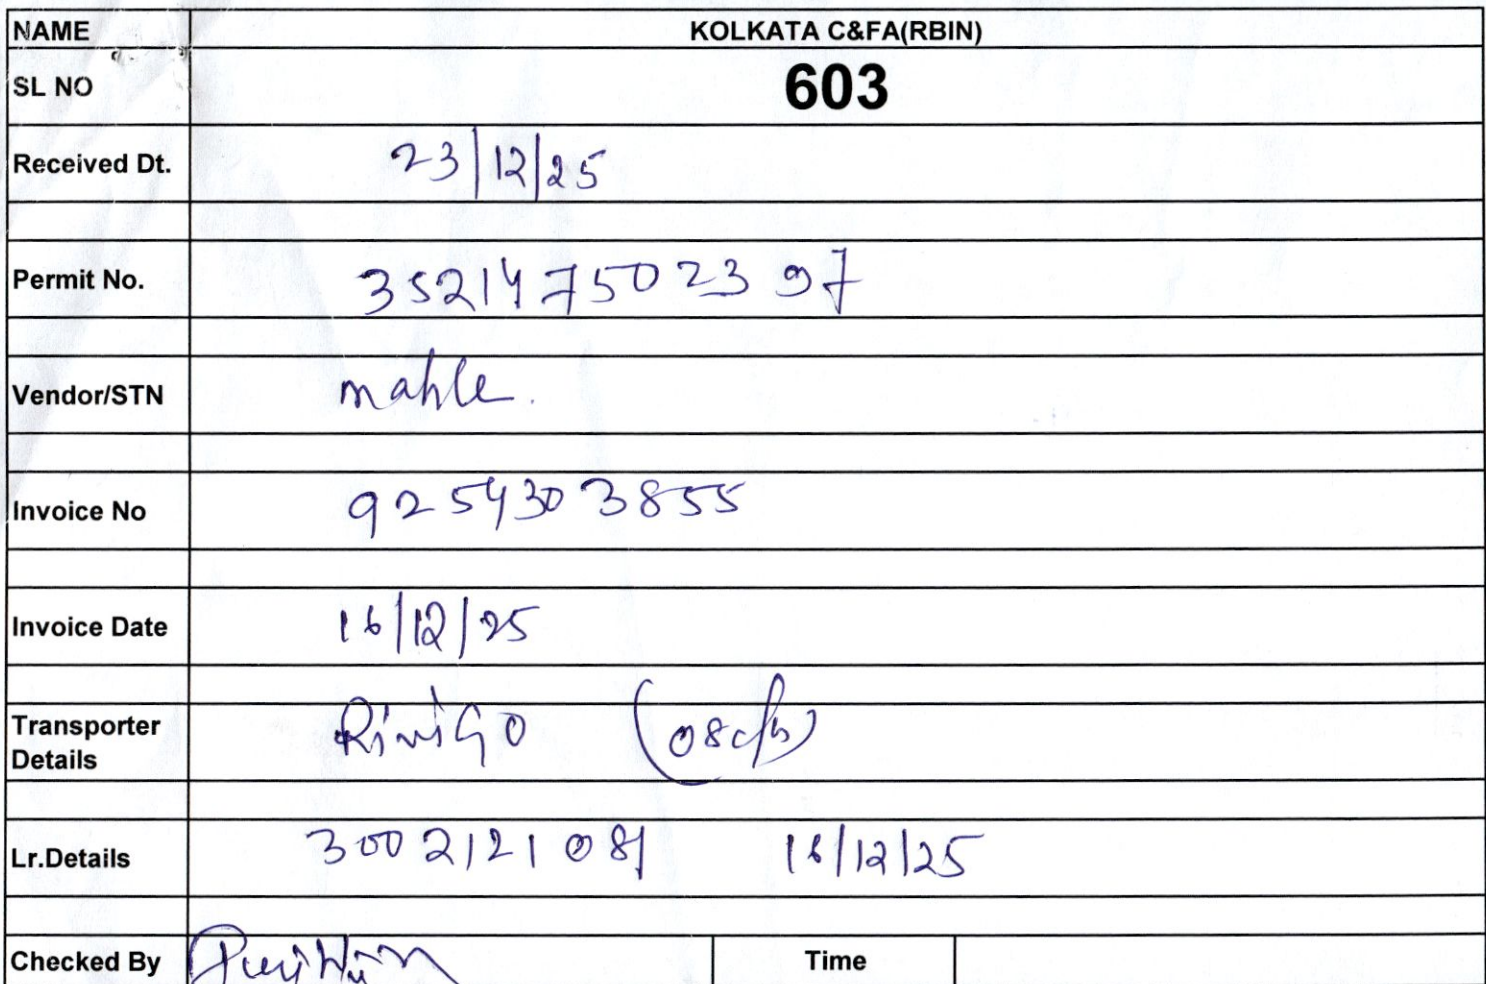 NAME KOLKATA C&FA(RBIN)
SL NO 603
Received Dt. 23/12/25
Permit No. 352147502397
Vendor/STN mahle.
Invoice No 9254303855
Invoice Date 16/12/25
Transporter RiviGO (08c/b)
Details
Lr.Details 3002121081 16/12/25
Checked By Time